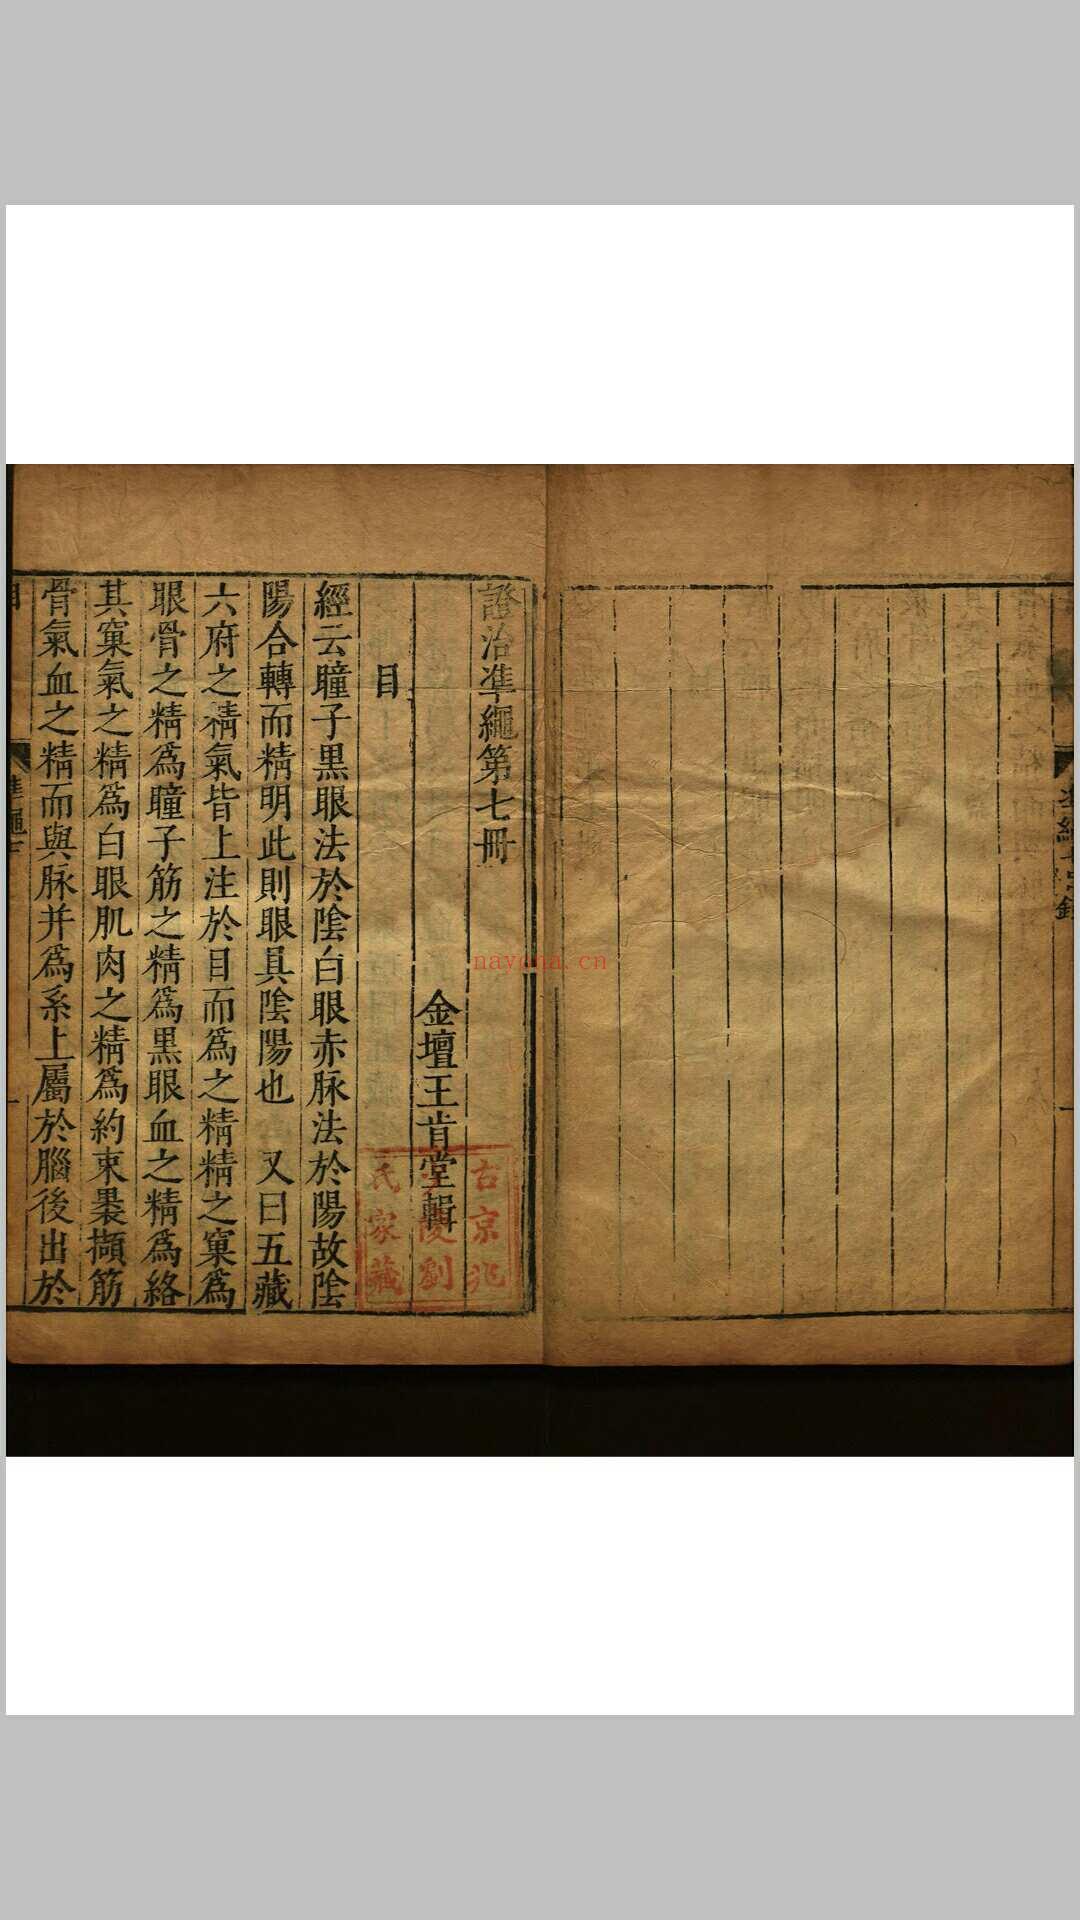 證治準繩第七冊
金壇王肯堂輯
目
經云瞳子黑眼法於陰白眼赤脉法於陽故陰
陽合轉而精明此則眼具陰陽也 又曰五藏
六府之精氣皆上注於目而為之精精之窠為
眼骨之精為瞳子筋之精為黑眼血之精為絡
其窠氣之精為白眼肌肉之精為約束裹擷筋
骨氣血之精而與脉并為系上屬於腦後出於
古京兆
陵劉
氏家藏
nayona.cn